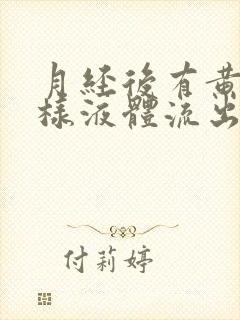 月經後有黃
樣液體流出
付莉婷